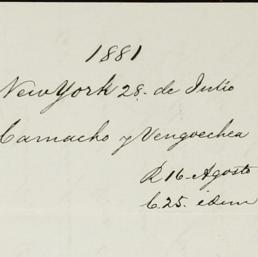 1881
New York 28. de Julio
Camacho y Vengoechea
R 16. Agosto
C 25. idem